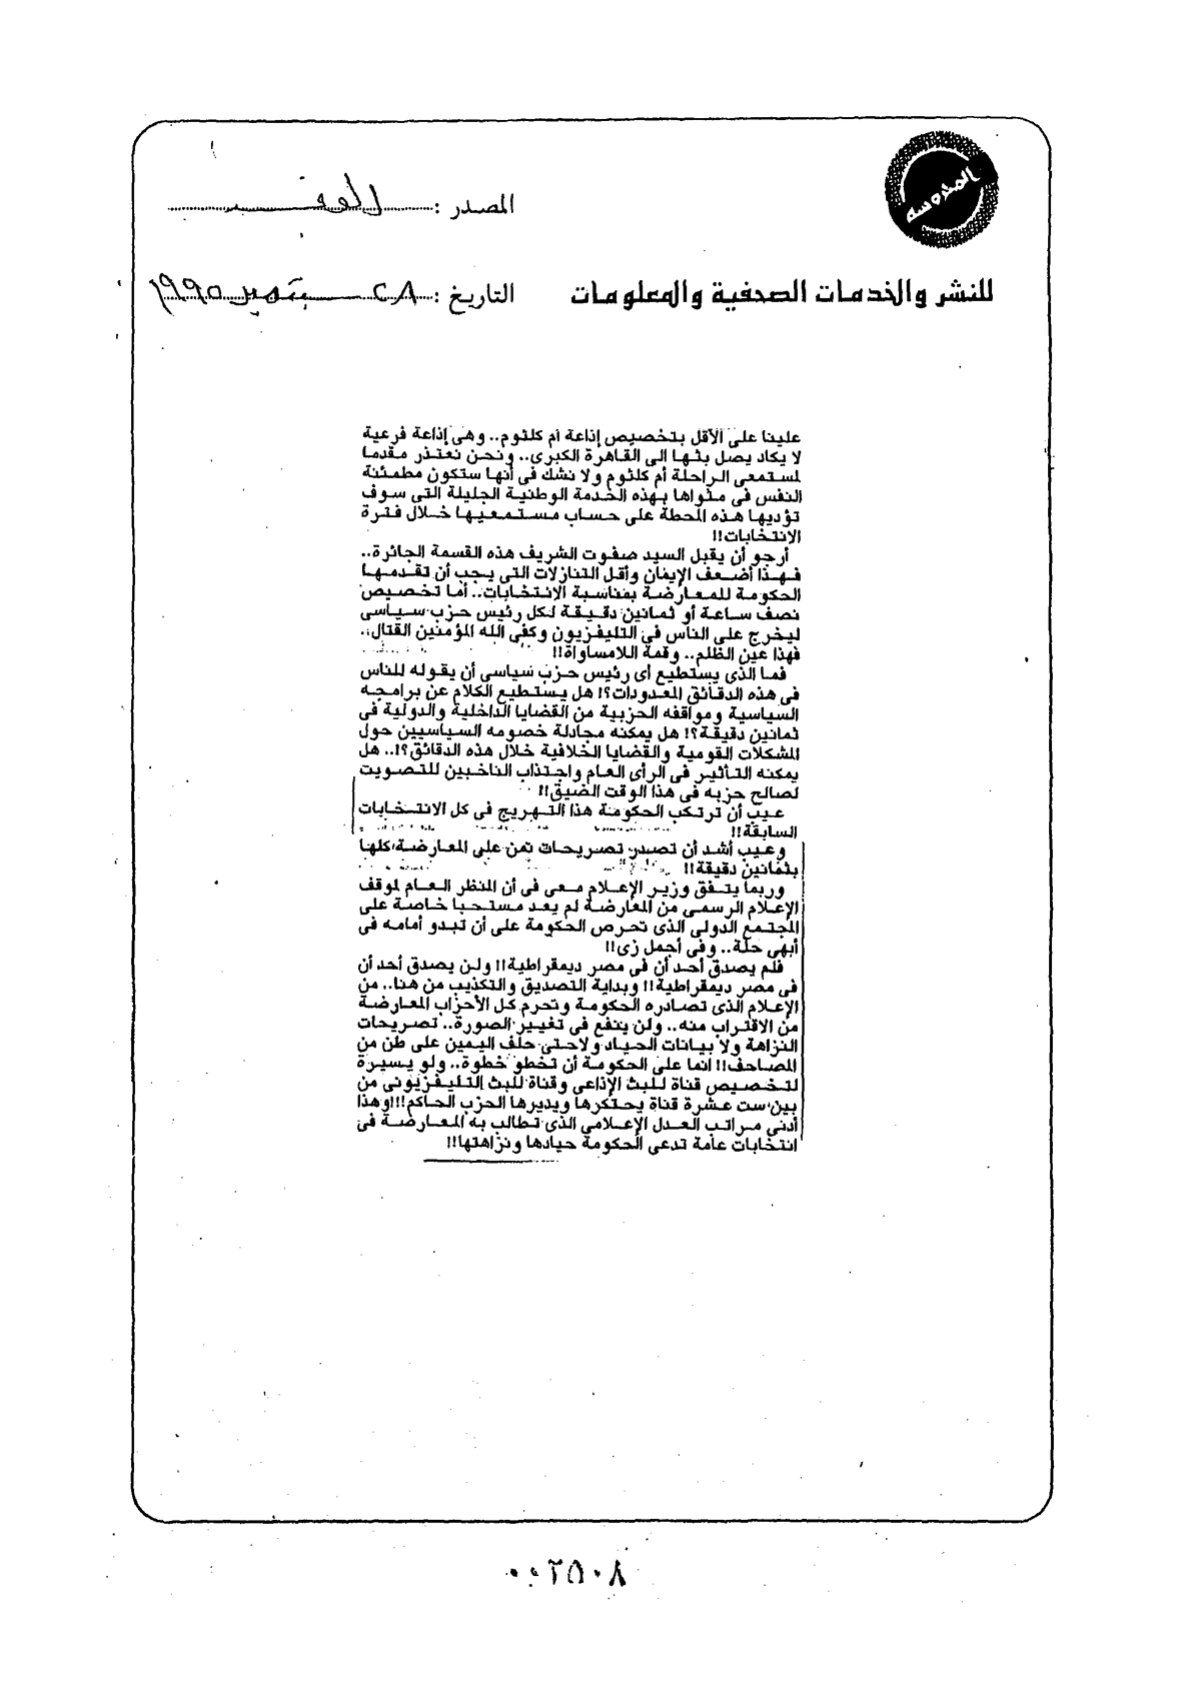 المحروسة
المصدر : الوفد
للنشر والخدمات الصحفية والمعلومات
التاريخ : ٢٨ سبتمبر ١٩٩٥
علينا على الأقل بتخصيص إذاعة أم كلثوم.. وهى إذاعة فرعية
لا يكاد يصل بثها الى القاهرة الكبرى.. ونحن نعتذر مقدما
لمستمعى الراحلة أم كلثوم ولا نشك فى أنها ستكون مطمئنة
النفس فى مثواها بهذه الخدمة الوطنية الجليلة التى سوف
تؤديها هذه المحطة على حساب مستمعيها خلال فترة
الانتخابات!!
أرجو أن يقبل السيد صفوت الشريف هذه القسمة الجائرة..
فهذا أضعف الإيمان وأقل التنازلات التى يجب أن تقدمها
الحكومة للمعارضة بمناسبة الانتخابات.. أما تخصيص
نصف ساعة أو ثمانين دقيقة لكل رئيس حزب سياسى
ليخرج على الناس فى التليفزيون وكفى الله المؤمنين القتال..
فهذا عين الظلم.. وقمة اللامساواة!!
فما الذى يستطيع أى رئيس حزب سياسى أن يقوله للناس
فى هذه الدقائق المعدودات؟! هل يستطيع الكلام عن برامجه
السياسية ومواقفه الحزبية من القضايا الداخلية والدولية فى
ثمانين دقيقة؟! هل يمكنه مجادلة خصومه السياسيين حول
المشكلات القومية والقضايا الخلافية خلال هذه الدقائق؟!.. هل
يمكنه التأثير فى الرأى العام واجتذاب الناخبين للتصويت
لصالح حزبه فى هذا الوقت الضيق!!
عيب أن ترتكب الحكومة هذا التهريج فى كل الانتخابات
السابقة!!
وعيب أشد أن تصدر تصريحات تمن على المعارضة كلها
بثمانين دقيقة!!
وربما يتفق وزير الإعلام معى فى أن المنظر العام لموقف
الإعلام الرسمى من المعارضة لم يعد مستحبا خاصة على
المجتمع الدولى الذى تحرص الحكومة على أن تبدو أمامه فى
أبهى حلة.. وفى أجمل زى!!
فلم يصدق أحد أن فى مصر ديمقراطية!! ولن يصدق أحد أن
فى مصر ديمقراطية!! وبداية التصديق والتكذيب من هنا.. من
الإعلام الذى تصادره الحكومة وتحرم كل الأحزاب المعارضة
من الاقتراب منه.. ولن ينفع فى تغيير الصورة.. تصريحات
النزاهة ولا بيانات الحياد ولاحتى حلف اليمين على طن من
المصاحف!! انما على الحكومة أن تخطو خطوة.. ولو يسيرة
لتخصيص قناة للبث الإذاعى وقناة للبث التليفزيونى من
بين ست عشرة قناة يحتكرها ويديرها الحزب الحاكم!!! وهذا
أدنى مراتب العدل الإعلامى الذى تطالب به المعارضة فى
انتخابات عامة تدعى الحكومة حيادها ونزاهتها!!
٠٠٢٥٠٨